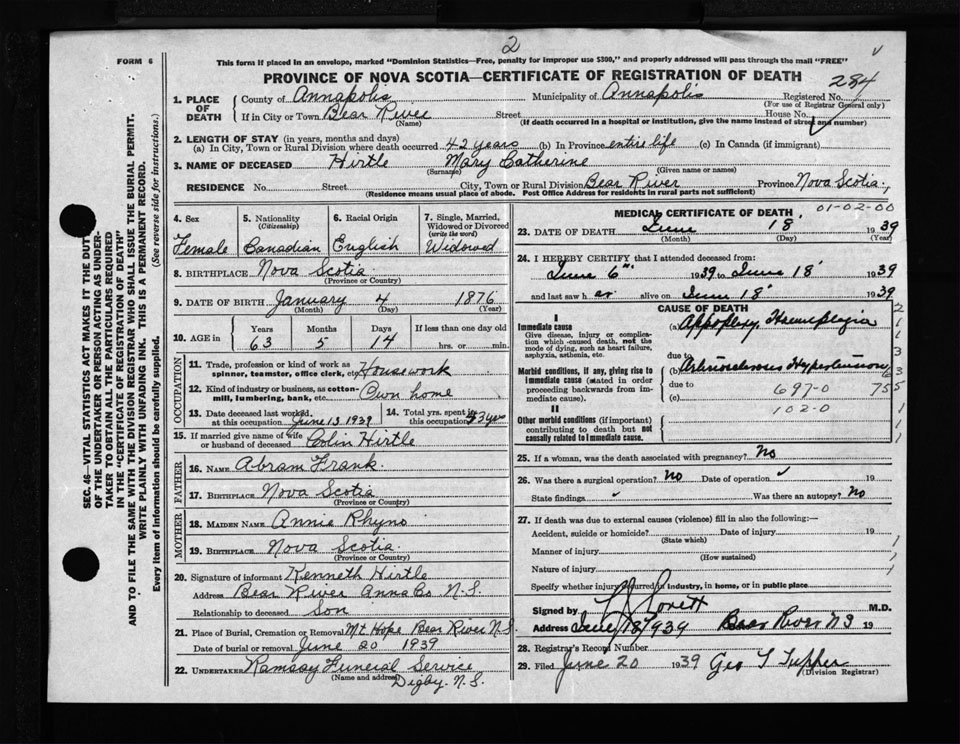 2
FORM 6
This form if placed in an envelope, marked "Dominion Statistics—Free, penalty for improper use $300," and properly addressed will pass through the mail "FREE"
PROVINCE OF NOVA SCOTIA—CERTIFICATE OF REGISTRATION OF DEATH
284
1. PLACE OF DEATH County of Annapolis Municipality of Annapolis Registered No.
(For use of Registrar General only)
If in City or Town Bear River Street House No.
(Name) (If death occurred in a hospital or institution, give the name instead of street and number)
2. LENGTH OF STAY (in years, months and days)
(a) In City, Town or Rural Division where death occurred 42 years (b) In Province entire life (c) In Canada (if immigrant)
3. NAME OF DECEASED Hirtle Mary Catherine
(Surname) (Given name or names)
RESIDENCE No. Street City, Town or Rural Division Bear River Province Nova Scotia
(Residence means usual place of abode. Post Office Address for residents in rural parts not sufficient)
4. Sex 5. Nationality (Citizenship) 6. Racial Origin 7. Single, Married, Widowed or Divorced (write the word)
Female Canadian English Widowed
8. BIRTHPLACE Nova Scotia
(Province or Country)
9. DATE OF BIRTH January 4 1876
(Month) (Day) (Year)
10. AGE in Years Months Days If less than one day old
63 5 14 hrs. or min.
OCCUPATION
11. Trade, profession or kind of work as spinner, teamster, office clerk, etc. Housework
12. Kind of industry or business, as cotton-mill, lumbering, bank, etc. Own home
13. Date deceased last worked at this occupation June 13 1939 14. Total yrs. spent in this occupation 43 yrs
15. If married give name of wife or husband of deceased Colin Hirtle
FATHER
16. NAME Abram Frank
17. BIRTHPLACE Nova Scotia
(Province or Country)
MOTHER
18. MAIDEN NAME Annie Rhyno
19. BIRTHPLACE Nova Scotia
(Province or Country)
20. Signature of informant Kenneth Hirtle
Address Bear River Anna Co N.S.
Relationship to deceased Son
21. Place of Burial, Cremation or Removal Mt Hope Bear River N.S
Date of burial or removal June 20 1939
22. UNDERTAKER Ramsay Funeral Service
(Name and address) Digby. N.S.
MEDICAL CERTIFICATE OF DEATH
01-02-00
23. DATE OF DEATH June 18 1939
(Month) (Day) (Year)
24. I HEREBY CERTIFY that I attended deceased from:
June 6th 1939 to June 18 1939
and last saw her alive on June 18 1939
CAUSE OF DEATH
I
Immediate cause
Give disease, injury or complication which caused death, not the mode of dying, such as heart failure, asphyxia, asthenia, etc.
(a) Appoplexy, Haemiplegia
due to
Morbid conditions, if any, giving rise to immediate cause (stated in order proceeding backwards from immediate cause).
(b) Arteriosclerosis Hypertension
due to 697-0 75
(c)
102-0
II
Other morbid conditions (if important) contributing to death but not causally related to immediate cause.
25. If a woman, was the death associated with pregnancy? No
26. Was there a surgical operation? No Date of operation
State findings Was there an autopsy? No
27. If death was due to external causes (violence) fill in also the following:—
Accident, suicide or homicide? Date of injury 19
(State which)
Manner of injury
(How sustained)
Nature of injury
Specify whether injury occurred in industry, in home, or in public place
Signed by Lovett M.D.
Address June 18 1939 Bear River N S 19
28. Registrar's Record Number
29. Filed June 20 1939 Geo T Tupper
(Division Registrar)
SEC. 46—VITAL STATISTICS ACT MAKES IT THE DUTY
OF THE UNDERTAKER OR PERSON ACTING AS UNDER-
TAKER TO OBTAIN ALL THE PARTICULARS REQUIRED
IN THE "CERTIFICATE OF REGISTRATION OF DEATH"
AND TO FILE THE SAME WITH THE DIVISION REGISTRAR WHO SHALL ISSUE THE BURIAL PERMIT.
WRITE PLAINLY WITH UNFADING INK. THIS IS A PERMANENT RECORD.
Every item of information should be carefully supplied. (See reverse side for instructions.)